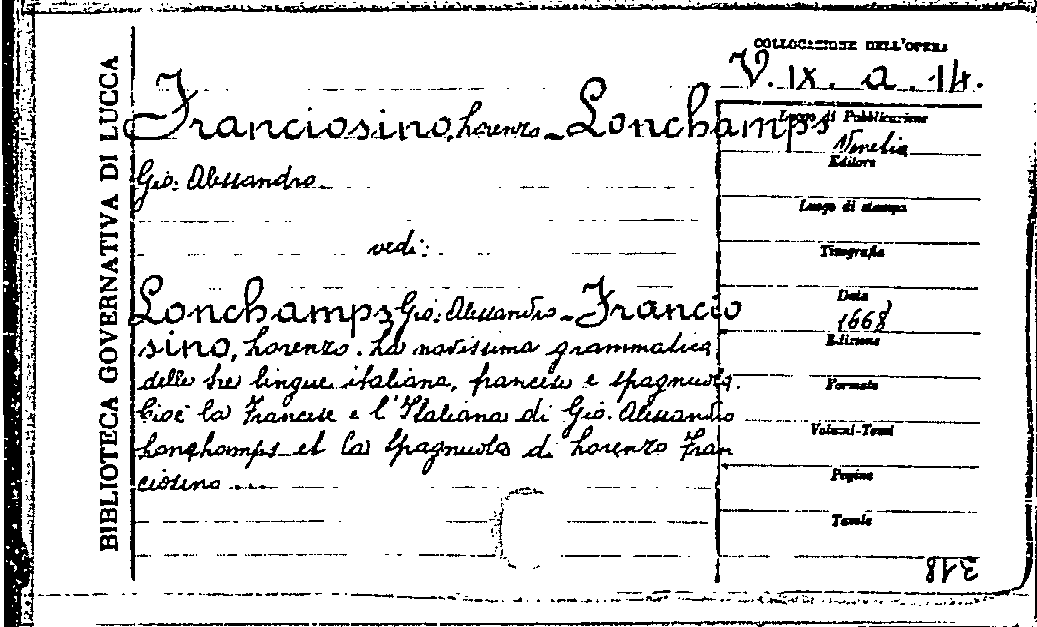 BIBLIOTECA GOVERNATIVA DI LUCCA
COLLOCAZIONE DELL'OPERA
V. IX. a. 14.
Franciosino, Lorenzo - Lonchamps
Gio: Alessandro
vedi:
Lonchamps, Gio: Alessandro - Francio
sino, Lorenzo. La novissima grammatica
delle tre lingue italiana, francese e spagnuola.
Cioè la Francese e l'Italiana di Gio. Alessandro
Lonchamps et la Spagnuola di Lorenzo Fran
ciosino ....
Luogo di Pubblicazione
Venetia
Editore
Luogo di stampa
Tipografia
Data
1668
Edizione
Formato
Volumi-Tomi
Pagine
Tavole
318